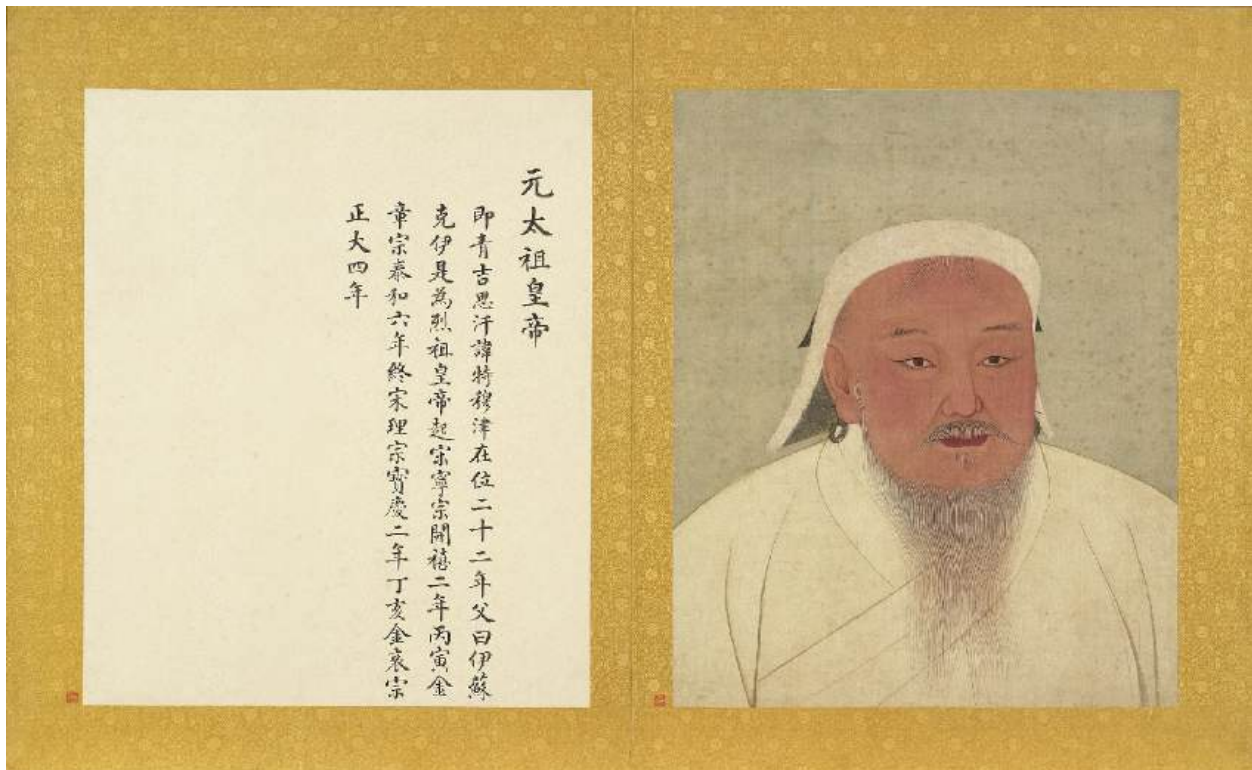 元太祖皇帝
即青吉思汗諱特穆津在位二十二年父曰伊蘇
克伊是為烈祖皇帝起宋寧宗開禧二年丙寅金
章宗泰和六年終宋理宗寳慶二年丁亥金哀宗
正大四年